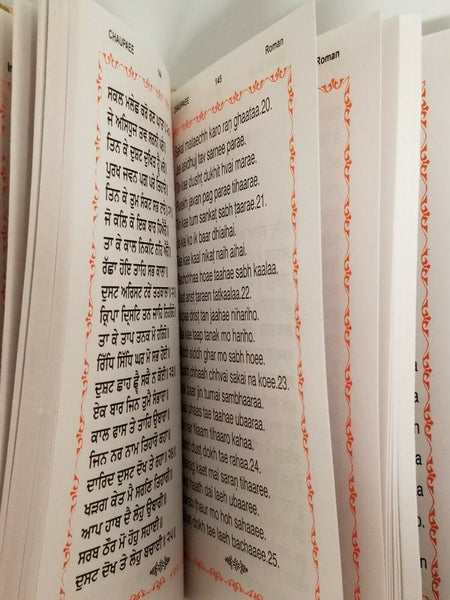 CHAUPAEE
ਸਕਲ ਮਲੇਛ ਕਰੋ ਰਣ
ਜੋ ਅਸਿਧੁਜ ਤਵ ਸਰਨੀ
ਤਿਨ ਕੇ ਦੁਸਟ ਦੁਖਿਤ ਹ੍ਵੈ
ਪੁਰਖ ਜਵਨ ਪਗ ਪਰੇ ਤਿਹਾਰੇ
ਤਿਨ ਕੇ ਤੁਮ ਸੰਕਟ ਸਭ
ਜੋ ਕਲਿ ਕੋ ਇਕ ਬਾਰ ਧਿਐਹੈ
ਤਾ ਕੇ ਕਾਲ ਨਿਕਟਿ ਨਹਿ ਐਹੈ
ਰੱਛਾ ਹੋਇ ਤਾਹਿ ਸਭ ਕਾਲਾ
ਦੁਸਟ ਅਰਿਸਟ ਟਰੇ ਤਤਕਾਲਾ
ਕ੍ਰਿਪਾ ਦ੍ਰਿਸਟਿ ਤਨ ਜਾਹਿ ਨਿਹਰਿਹੋ
ਤਾ ਕੇ ਤਾਪ ਤਨਕ ਮੋ ਹਰਿਹੋ
ਰਿੱਧਿ ਸਿੱਧਿ ਘਰ ਮੋ ਸਭ ਹੋਈ॥
ਦੁਸਟ ਛਾਹ ਛ੍ਵੈ ਸਕੈ ਨ ਕੋਈ॥੨੩॥
ਏਕ ਬਾਰ ਜਿਨ ਤੁਮੈ ਸੰਭਾਰਾ॥
ਕਾਲ ਫਾਸ ਤੇ ਤਾਹਿ ਉਬਾਰਾ॥
ਜਿਨ ਨਰ ਨਾਮ ਤਿਹਾਰੋ ਕਹਾ॥
ਦਾਰਿਦ ਦੁਸਟ ਦੋਖ ਤੇ ਰਹਾ॥੨੪॥
ਖੜਗ ਕੇਤ ਮੈ ਸਰਣਿ ਤਿਹਾਰੀ॥
ਆਪ ਹਾਥ ਦੈ ਲੇਹੁ ਉਬਾਰੀ॥
ਸਰਬ ਠੌਰ ਮੋ ਹੋਹੁ ਸਹਾਈ॥
ਦੁਸਟ ਦੋਖ ਤੇ ਲੇਹੁ ਬਚਾਈ॥੨੫॥
145 Roman
maleechh karo ran ghaataa.20.
asidhuj tav sarnee parae.
kae dusht dukhit hvai marae.
javan pag parae tihaarae.
kae tum sankat sabh taarae.21.
kal ko ik baar dhiaihai.
kae kaal nikat naih aihai.
hoae taahae sabh kaalaa.
arist taraen tatkaalaa.22.
drist tan jaahae nihariho.
kae taap tanak mo hariho.
siddh ghar mo sabh hoee.
chhaah chhvai sakai na koee.23.
baar jin tumai sambhaaraa.
phaas tae taahae ubaaraa.
nar Naam tihaaro kahaa.
dust dokh tae rahaa.24.
kaet mai saran tihaaree.
haath dai laeh ubaaree.
thaur mo hoh sahaaee.
dokh tae laeh bachaaee.25.
Roman